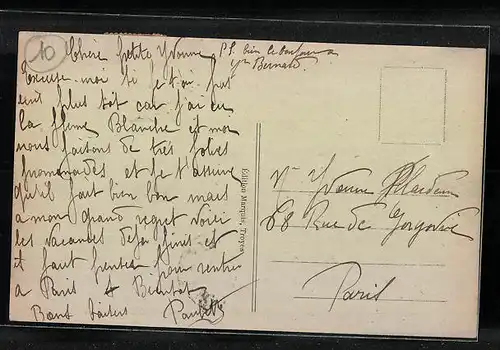 10
Chère petite Yvonne
Excuse-moi si je t'ai pas
écrit plus tôt car j'ai eu
la Blanche et moi
nous faisons de très jolies
promenades et je t'assure
qu'il fait bien bon mais
a mon grand regret voici
les vacances deja finies et
il faut penser pour rentrer
a Paris a Bientot
Bons baisers
P.S. bien le bonjour a
Bernard.
Edition Marquis, Troyes
Yvonne
68 Rue de
Paris